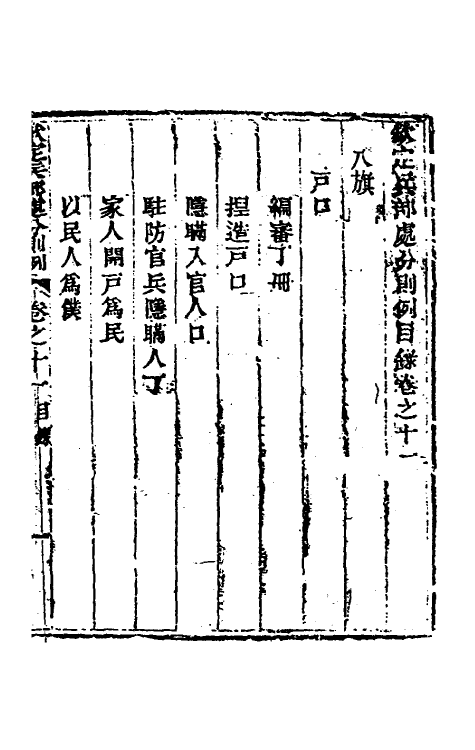 欽定兵部處分則例目錄卷之十一
八旗
戶口
編審丁冊
捏造戶口
隱瞞入官人口
駐防官兵隱瞞人丁
家人開戶爲民
以民人爲僕
欽定兵部處分則例 卷之十一目錄